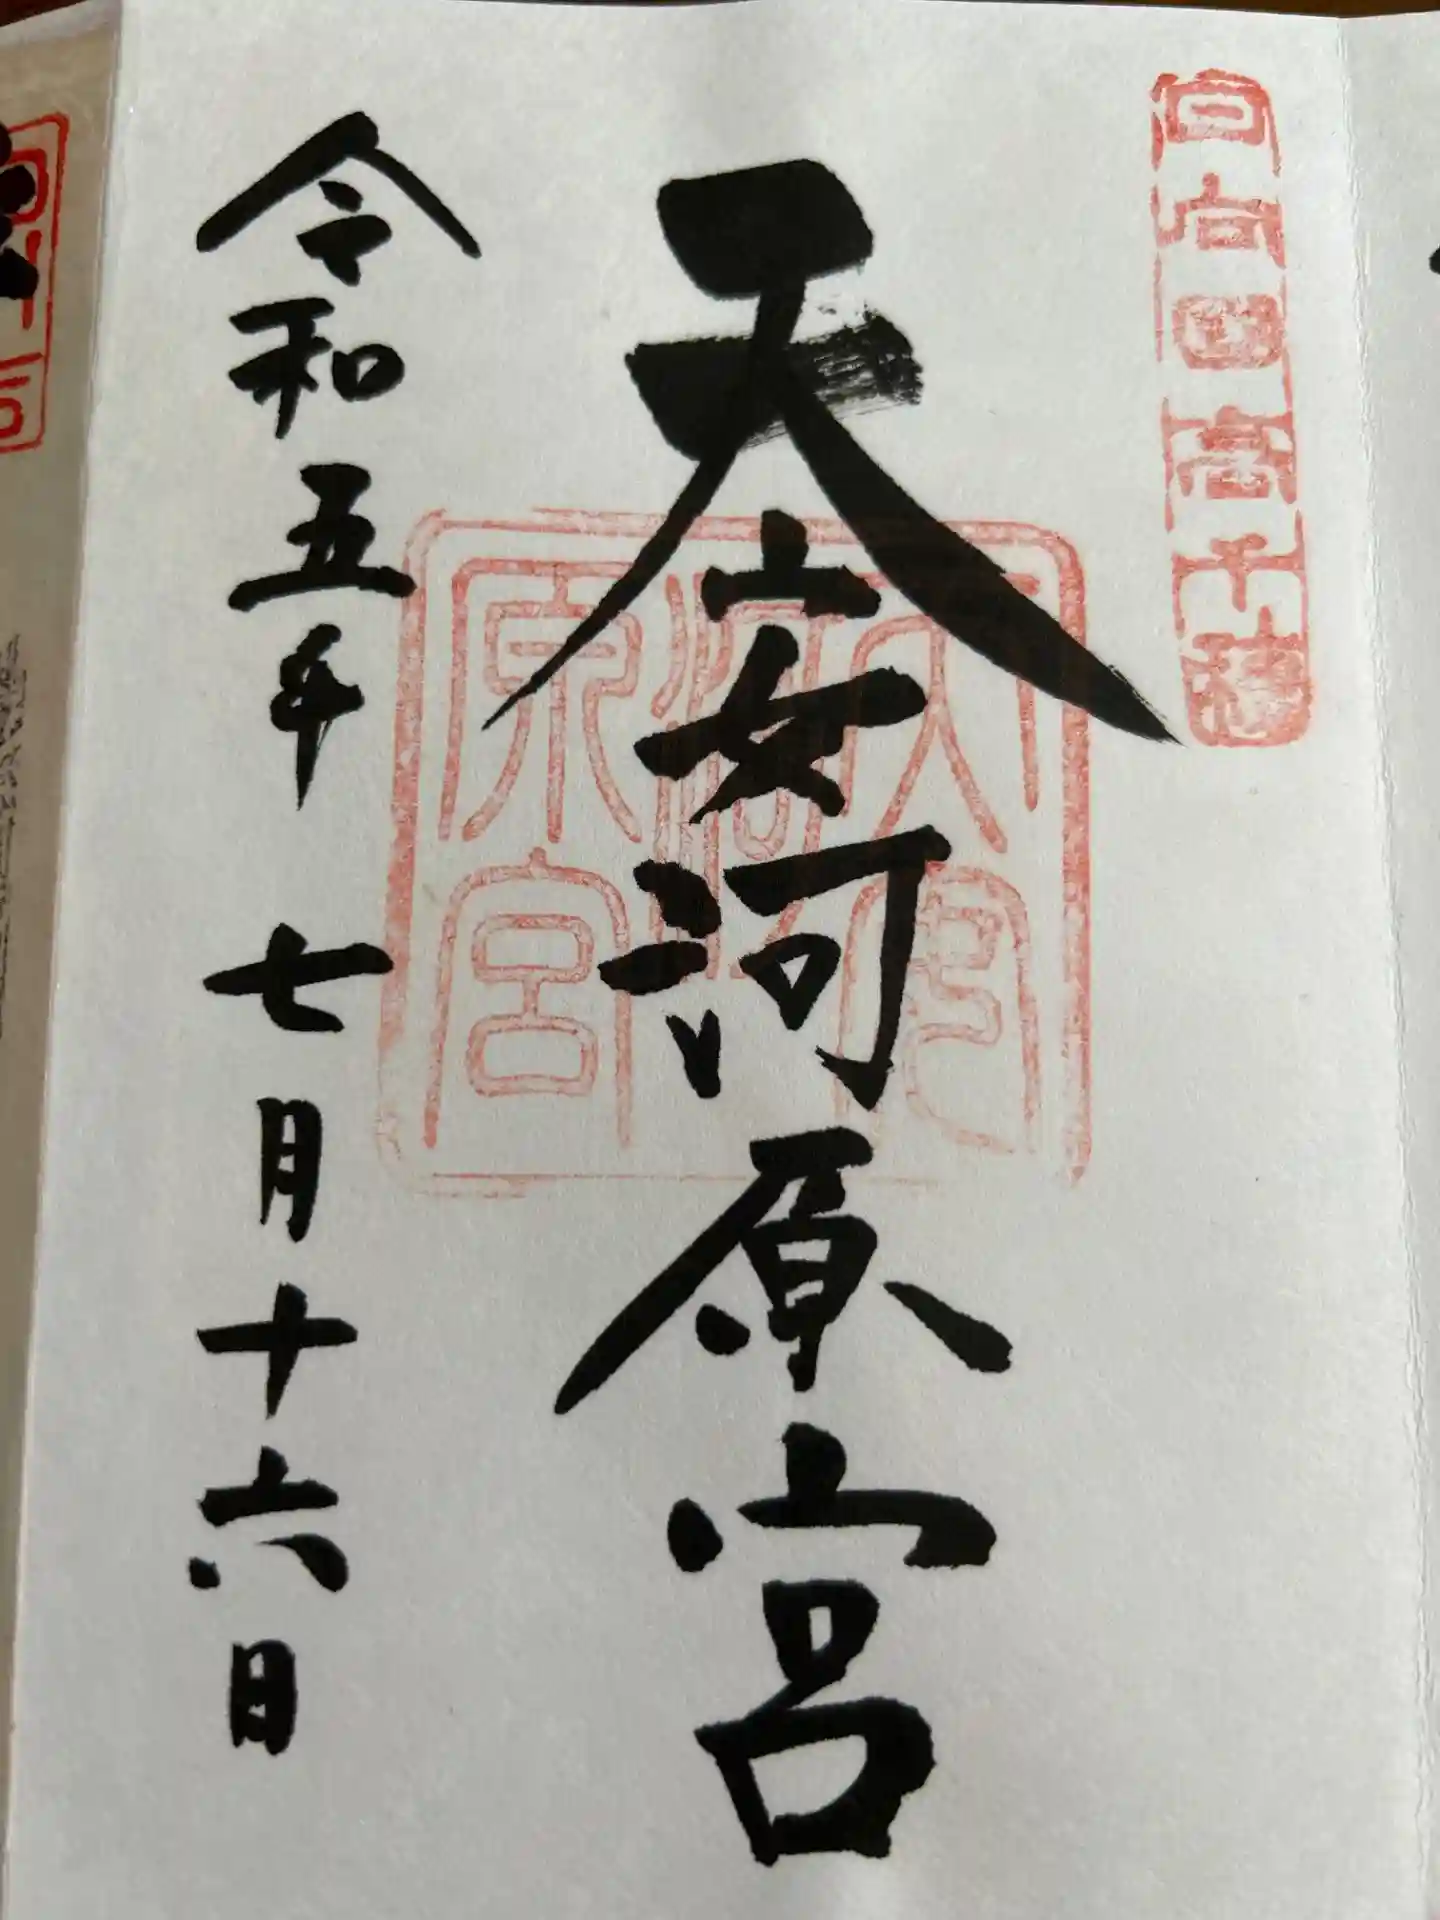 日向國高千穂
天安河原宮
天安河原宮
令和五年 七月十六日